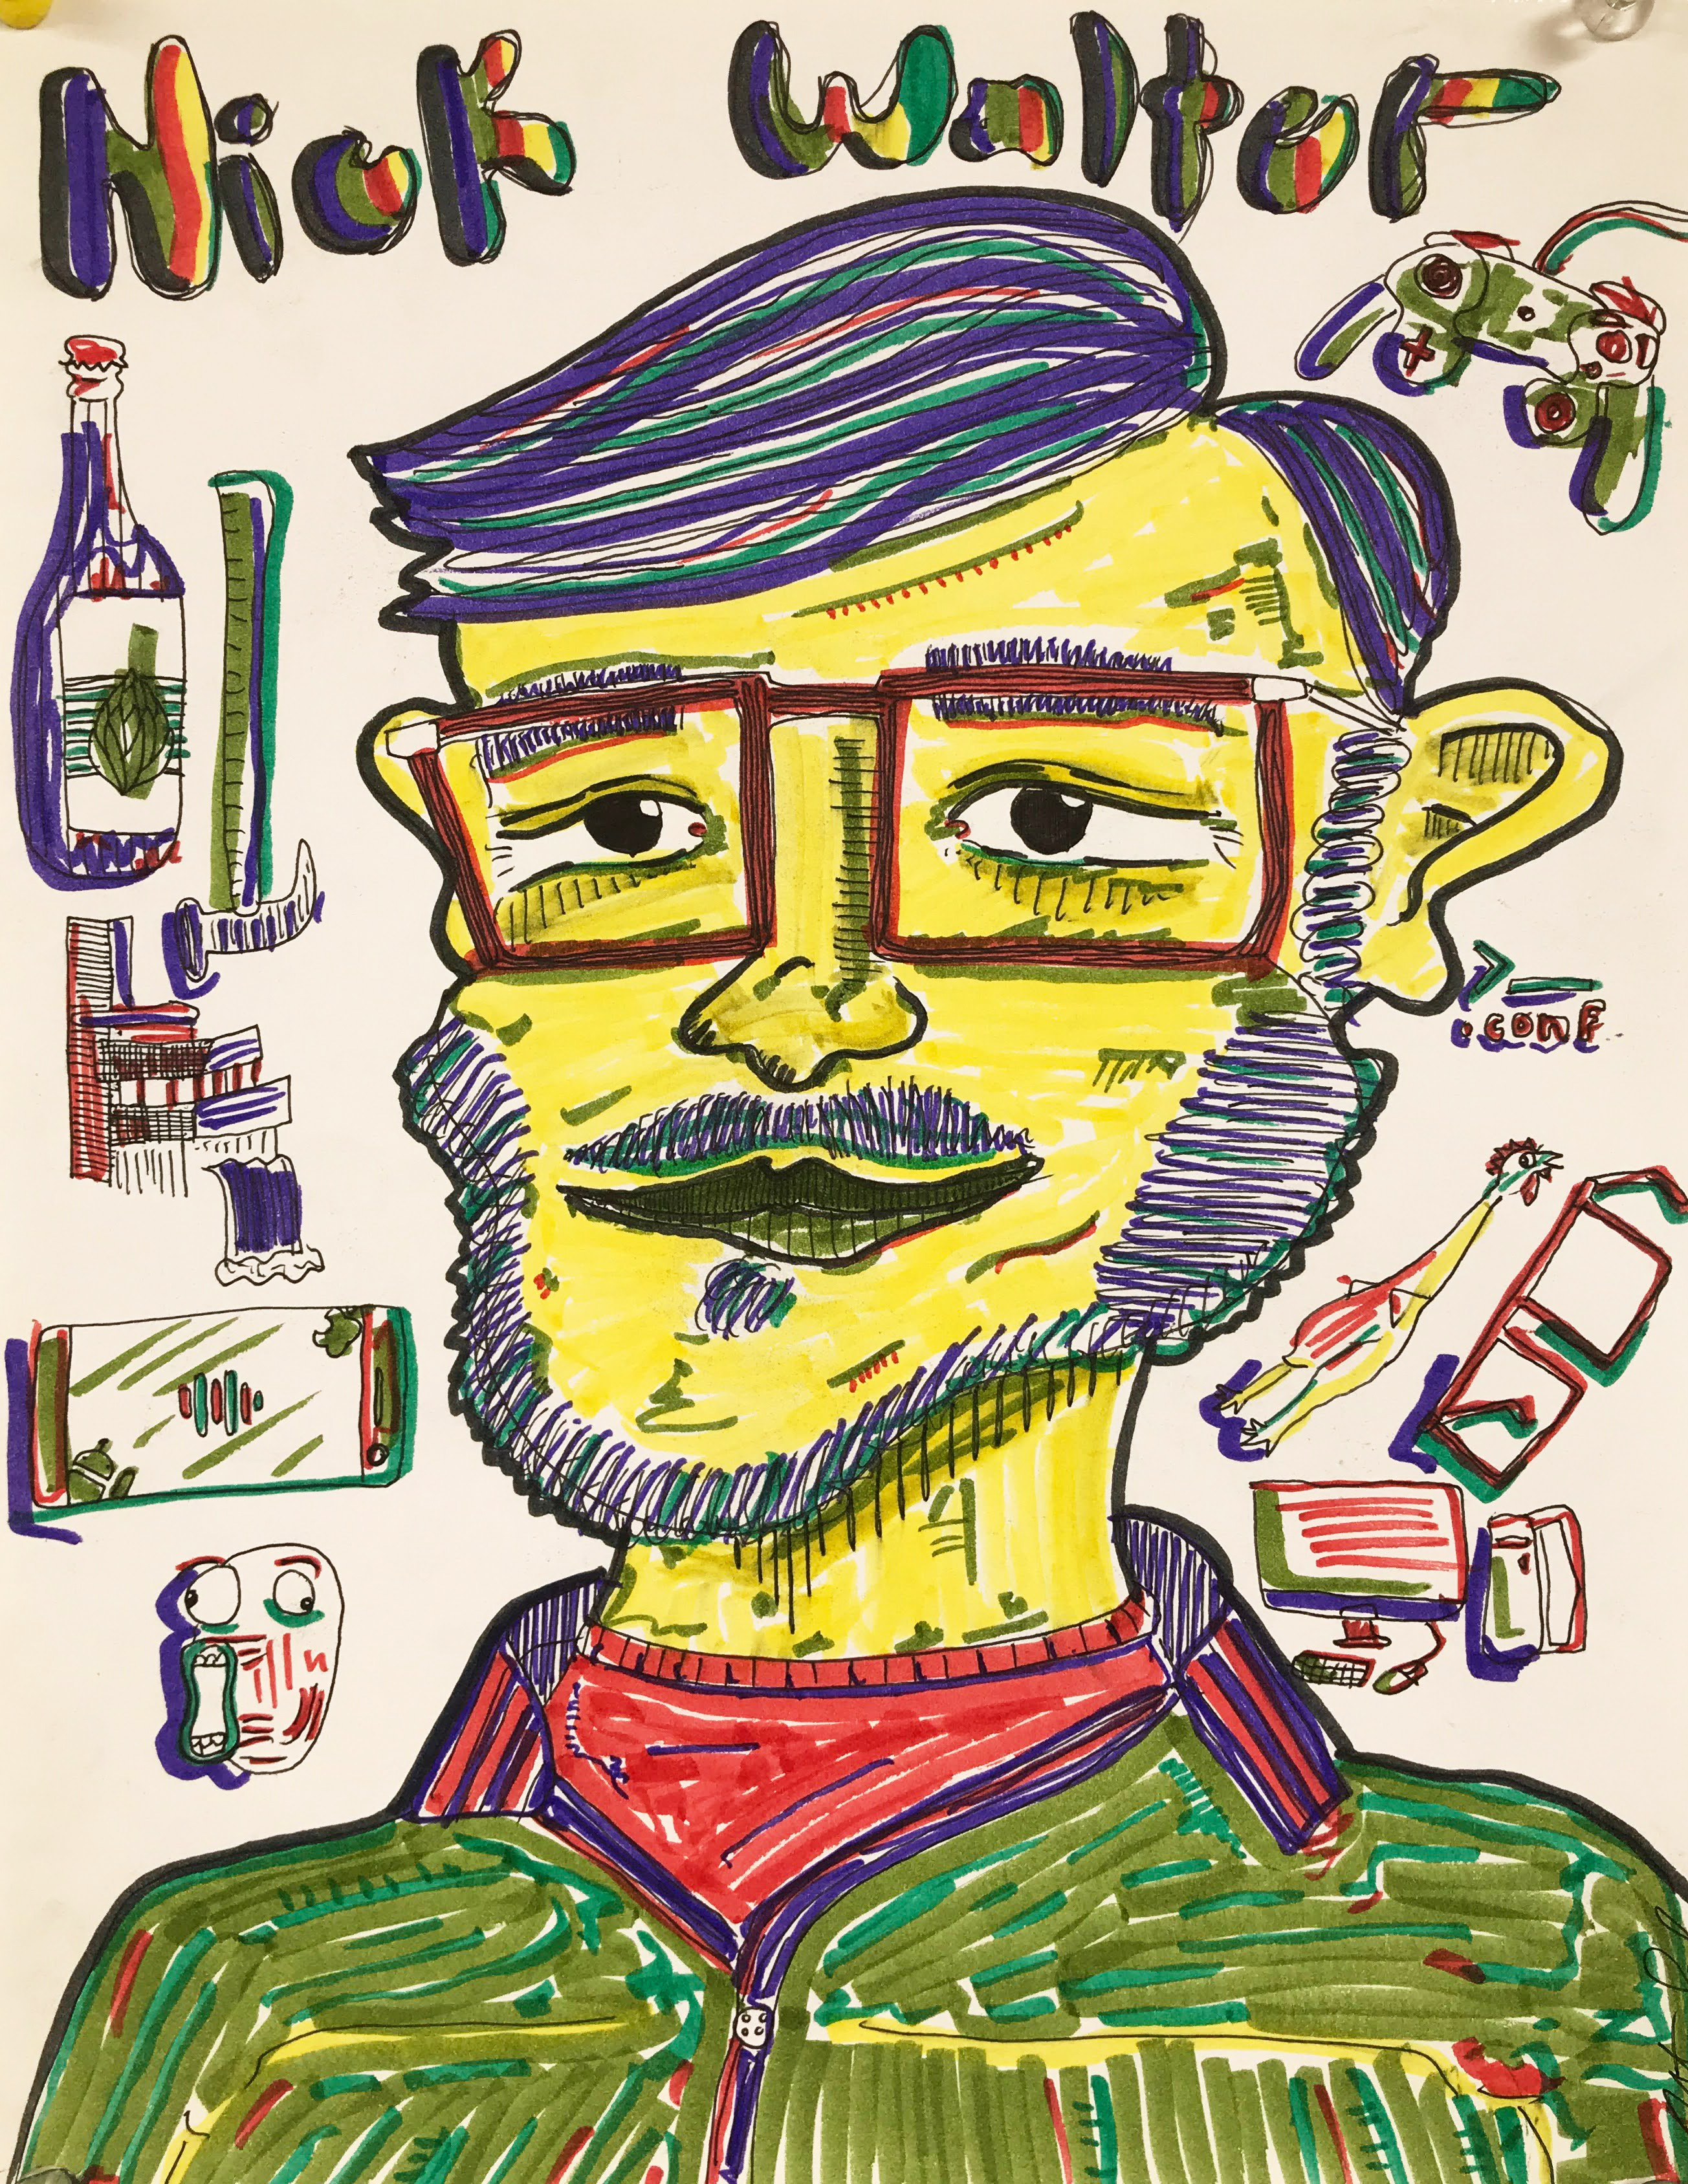 Nick Walter
>_
.conf